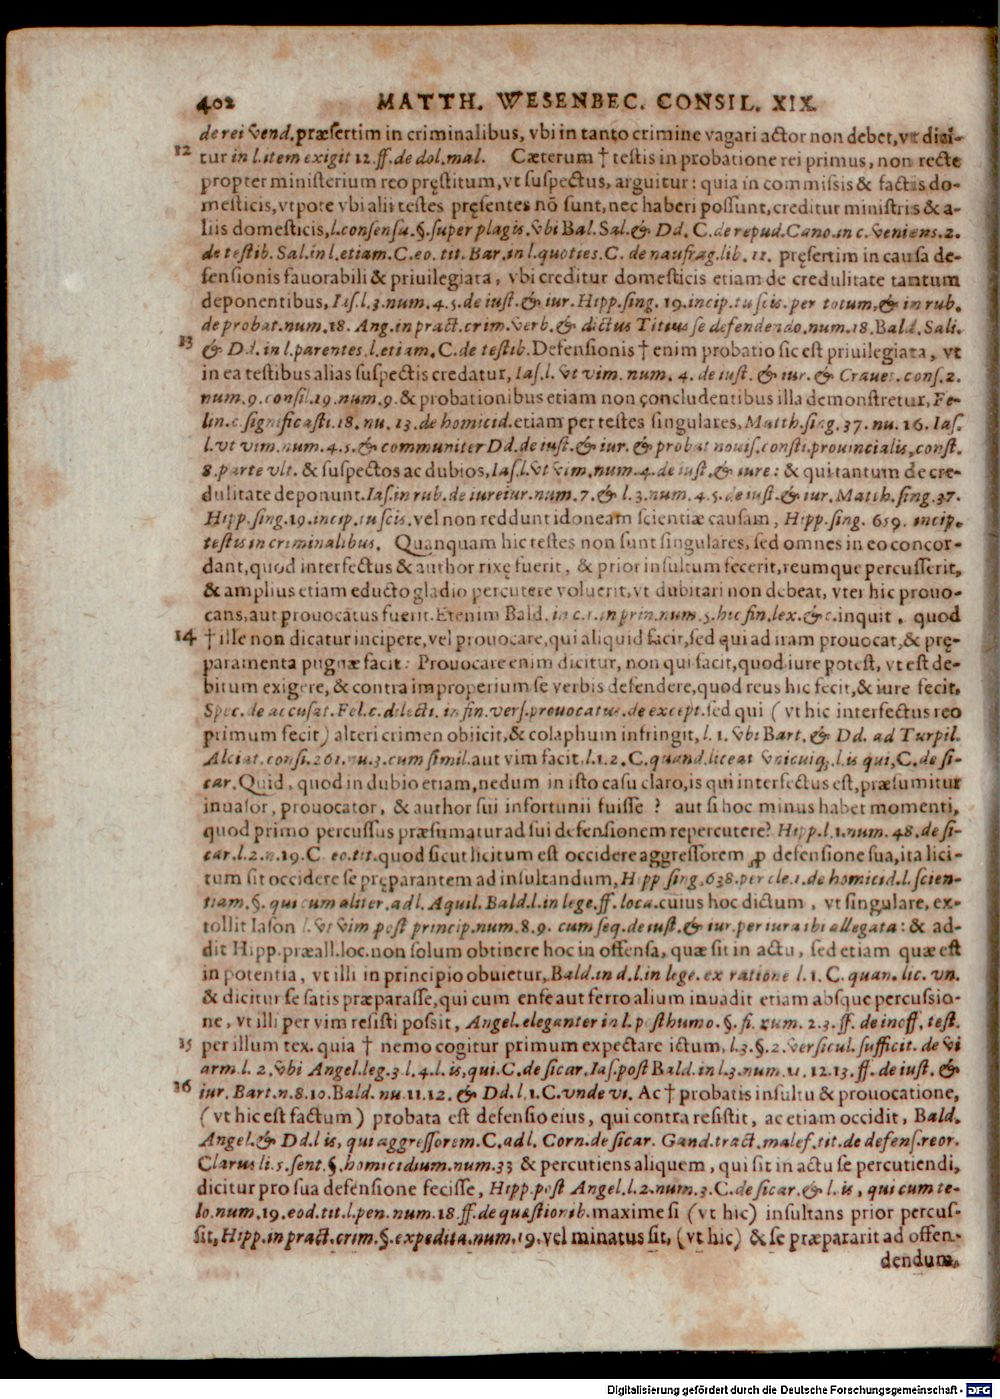 402 MATTH. WESENBEC. CONSIL. XIX.
de rei vend. præsertim in criminalibus, vbi in tanto crimine vagari actor non debet, vt dici-
12 tur in l. item exigit 12. ff. de dol. mal. Cæterum † testis in probatione rei primus, non recte
propter ministerium reo pręstitum, vt suspectus, arguitur: quia in commissis & factis do-
mesticis, vtpote vbi alii testes pręsentes nō sunt, nec haberi possunt, creditur ministris & a-
liis domesticis, l. consensu. §. super plagis. vbi Bal. Sal. & Dd. C. de repud. Cano. in c. veniens. 2.
de testib. Sal. in l. etiam. C. eo. tit. Bar. in l. quoties. C. de naufrag. lib. 11. pręsertim in causa de-
fensionis fauorabili & priuilegiata, vbi creditur domesticis etiam de credulitate tantum
deponentibus, Ias. l. 3. num. 4. 5. de iust. & iur. Hipp. sing. 19. incip. tu scis. per totum, & in rub.
de probat. num. 18. Ang. in pract. crim. verb. & dictus Titius se defendendo. num. 18. Bald. Sali.
13 & Dd. in l. parentes. l. etiam. C. de testib. Defensionis † enim probatio sic est priuilegiata, vt
in ea testibus alias suspectis credatur, Ias. l. vt vim. num. 4. de iust. & iur. & Crauet. cons. 2.
num. 9. consil. 19. num. 9. & probationibus etiam non concludentibus illa demonstretur, Fe-
lin. c. significasti. 18. nu. 13. de homicid. etiam per testes singulares, Matth. sing. 37. nu. 16. Ias.
l. vt vim. num. 4. 5. & communiter Dd. de iust. & iur. & probat nouis. consti. prouincialis, const.
8. parte vlt. & suspectos ac dubios, Ias. l. vt vim. num. 4. de iust. & iure: & qui tantum de cre-
dulitate deponunt. Ias. in rub. de iureiur. num. 7. & l. 3. num. 4. 5. de iust. & iur. Matth. sing. 37.
Hipp. sing. 19. incip. tu scis. vel non reddunt idoneam scientiæ causam, Hipp. sing. 659. incip.
testis in criminalibus. Quanquam hic testes non sunt singulares, sed omnes in eo concor-
dant, quod interfectus & author rixę fuerit, & prior insultum fecerit, reumque percusserit,
& amplius etiam educto gladio percutere voluerit, vt dubitari non debeat, vter hic prouo-
cans, aut prouocatus fuerit. Etenim Bald. in c. 1. in prin. num. 5. hic fin. lex. &c. inquit, quod
14 † ille non dicatur incipere, vel prouocare, qui aliquid facit, sed qui ad iram prouocat, & prę-
paramenta pugnæ facit: Prouocare enim dicitur, non qui facit, quod iure potest, vt est de-
bitum exigere, & contra improperium se verbis defendere, quod reus hic fecit, & iure fecit.
Spec. de accusat. Fel. c. dilecti. in fin. vers. prouocatus. de except. sed qui (vt hic interfectus reo
primum fecit) alteri crimen obiicit, & colaphum infringit, l. 1. vbi Bart. & Dd. ad Turpil.
Alciat. consi. 261. nu. 3. cum simil. aut vim facit, l. 1. 2. C. quand. liceat vnicuiq; l. is qui, C. de si-
car. Quid, quod in dubio etiam, nedum in isto casu claro, is qui interfectus est, præsumitur
inuasor, prouocator, & author sui infortunii fuisse? aut si hoc minus habet momenti,
quod primo percussus præsumatur ad sui defensionem repercutere? Hipp. l. 1. num. 48. de si-
car. l. 2. n. 19. C. eo. tit. quod sicut licitum est occidere aggressorem ꝓ defensione sua, ita lici-
tum sit occidere se pręparantem ad insultandum, Hipp sing. 638. per cle. 1. de homicid. l. scien-
tiam. §. qui cum aliter. ad l. Aquil. Bald. l. in lege. ff. loca. cuius hoc dictum, vt singulare, ex-
tollit Iason l. vt vim post princip. num. 8. 9. cum seq. de iust. & iur. per iura ibi allegata: & ad-
dit Hipp. præall. loc. non solum obtinere hoc in offensa, quæ sit in actu, sed etiam quæ est
in potentia, vt illi in principio obuietur, Bald. in d. l. in lege. ex ratione l. 1. C. quan. lic. vn.
& dicitur se satis præparasse, qui cum ense aut ferro alium inuadit etiam absque percussio-
ne, vt illi per vim resisti possit, Angel. eleganter in l. posthumo. §. si. num. 2. 3. ff. de inoff. test.
15 per illum tex. quia † nemo cogitur primum expectare ictum, l. 3. §. 2. versicul. sufficit. de vi
arm. l. 2. vbi Angel. leg. 3. l. 4. l. is, qui. C. de sicar. Ias. post Bald. in l. 3. num. 11. 12. 13. ff. de iust. &
16 iur. Bart. n. 8. 10. Bald. nu. 11. 12. & Dd. l. 1. C. vnde vi. Ac † probatis insultu & prouocatione,
(vt hic est factum) probata est defensio eius, qui contra resistit, ac etiam occidit, Bald.
Angel. & Dd. l is, qui aggressorem. C. ad l. Corn. de sicar. Gand. tract. malef. tit. de defens. reor.
Clarus li. 5. sent. §. homicidium. num. 33 & percutiens aliquem, qui sit in actu se percutiendi,
dicitur pro sua defensione fecisse, Hipp. post Angel. l. 2. num. 3. C. de sicar. & l. is, qui cum te-
lo. num. 19. eod. tit. l. pen. num. 18. ff. de quæstionib. maxime si (vt hic) insultans prior percus-
sit, Hipp. in pract. crim. §. expedita. num. 19. vel minatus sit, (vt hic) & se præpararit ad offen-
dendum.
Digitalisierung gefördert durch die Deutsche Forschungsgemeinschaft - DFG